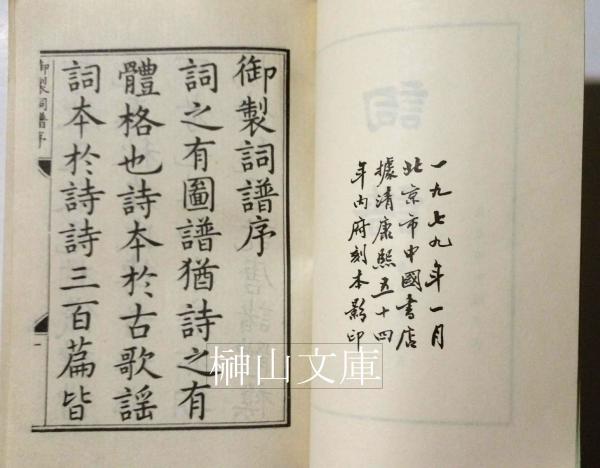 一九七九年一月
北京市中國書店
據清康熙五十四
年內府刻本影印
御製詞譜序
詞之有圖譜猶詩之有
體格也詩本於古歌謡
詞本於詩詩三百篇皆
御製詞譜序
一
榊山文庫
詞